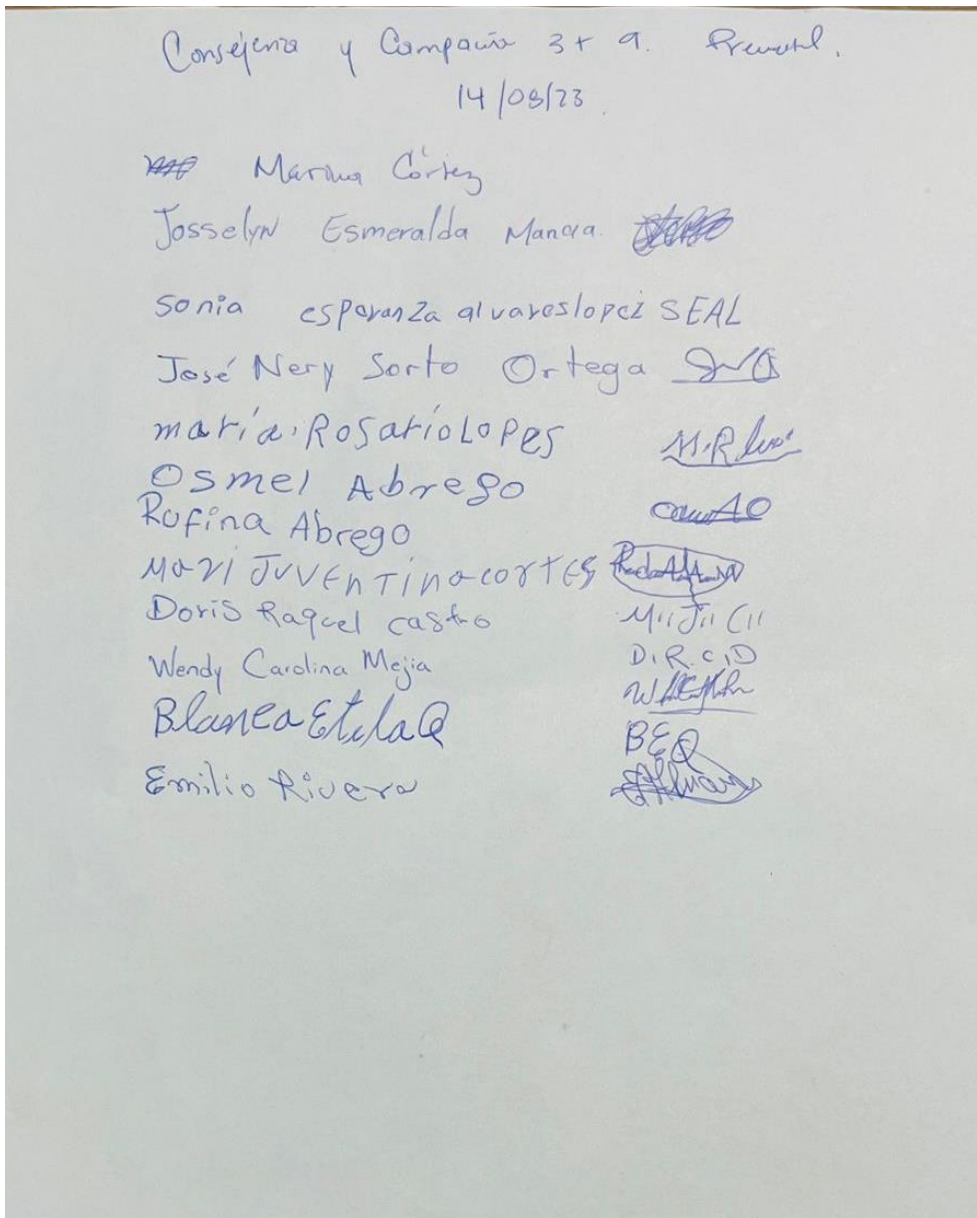 Consejeria y Compañia 3 + 9. Prenatal.
14/08/23.
Marina Córtez
Josselyn Esmeralda Mancia.
sonia esperanza alvareslopez SEAL
José Nery Sorto Ortega
maría. Rosario Lopes M.R
Osmel Abrego
Rufina Abrego
Mari Juventina cortes
Doris Raquel castro M J C
Wendy Carolina Mejia D.R.C.D
Blanca Etela Q BEQ
Emilio Rivera